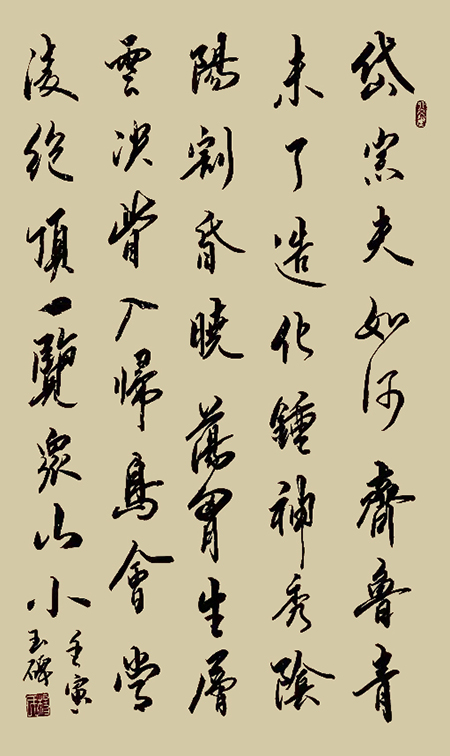 岱宗夫如何齊魯青
未了造化鍾神秀陰
陽割昏曉蕩胷生層
雲决眥入歸鳥會當
凌絶頂一覽衆山小
壬寅
玉碑